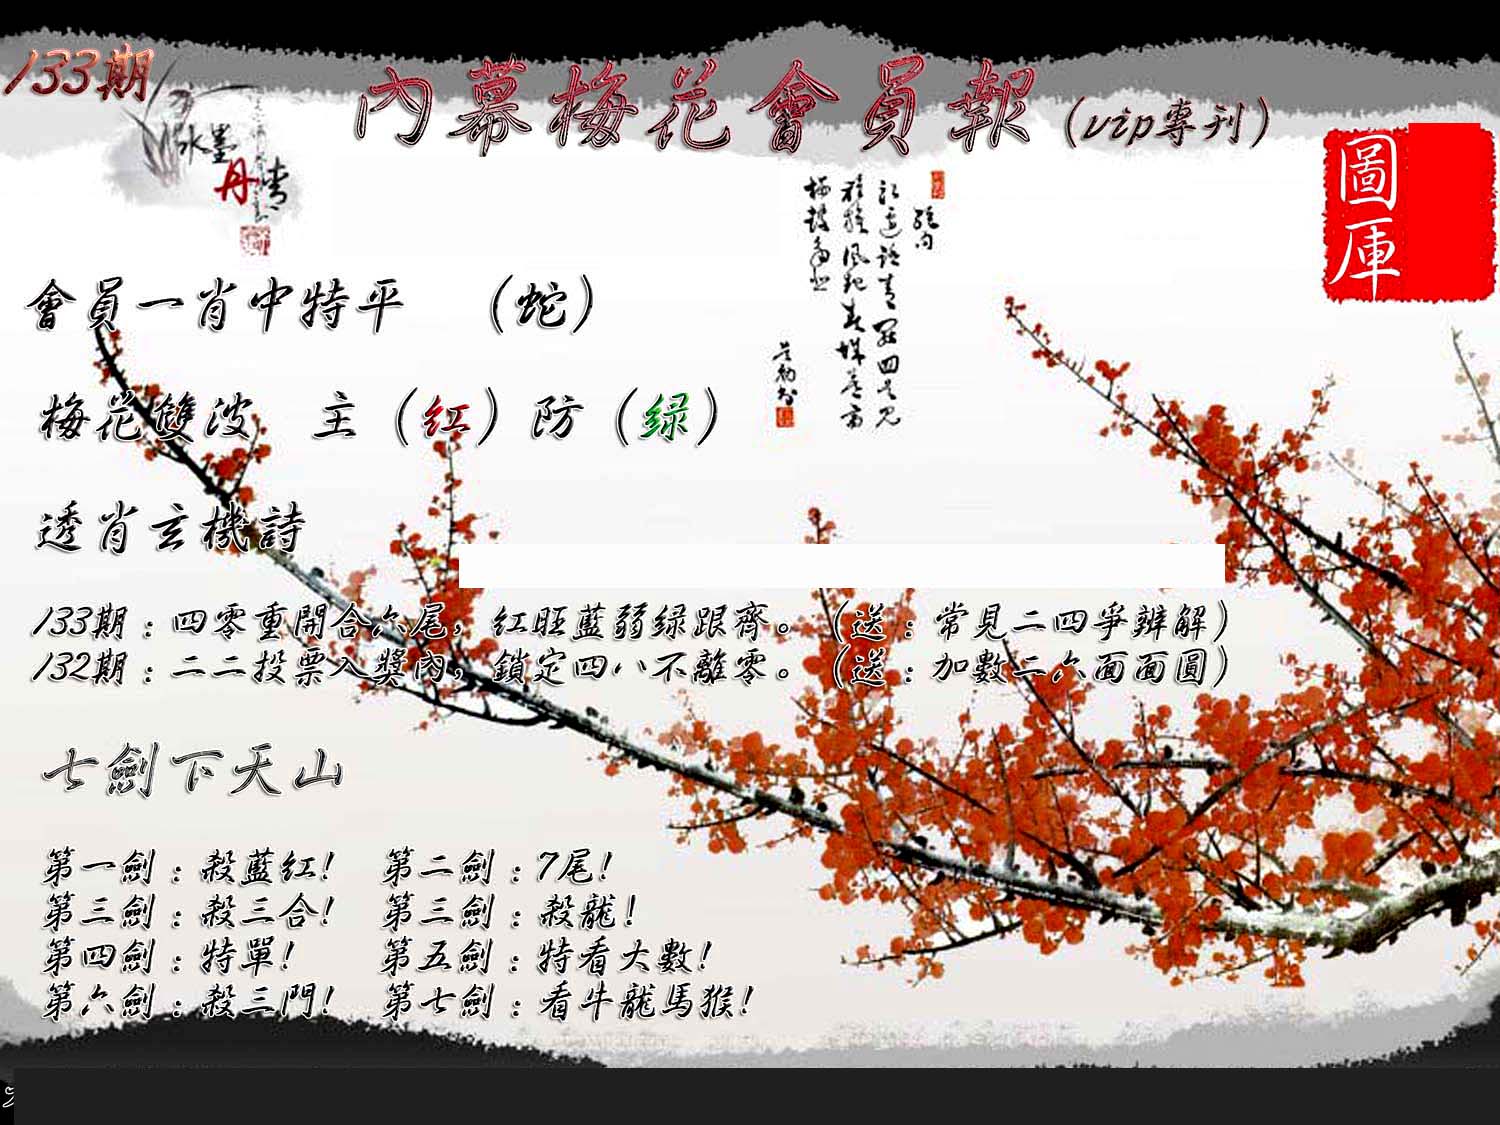 133期
內幕梅花會員報(vip專刊)
水墨
丹青
圖庫
會員一肖中特平 (蛇)
梅花雙波 主(红)防(绿)
透肖玄機詩
133期:四零重開合六尾,红旺藍弱绿跟齊。(送:常見二四爭辨解)
132期:二二投票入獎內,鎖定四八不離零。(送:加數二六面面圓)
七劍下天山
第一劍:殺藍红! 第二劍:7尾!
第三劍:殺三合! 第三劍:殺龍!
第四劍:特單! 第五劍:特看大數!
第六劍:殺三門! 第七劍:看牛龍馬猴!